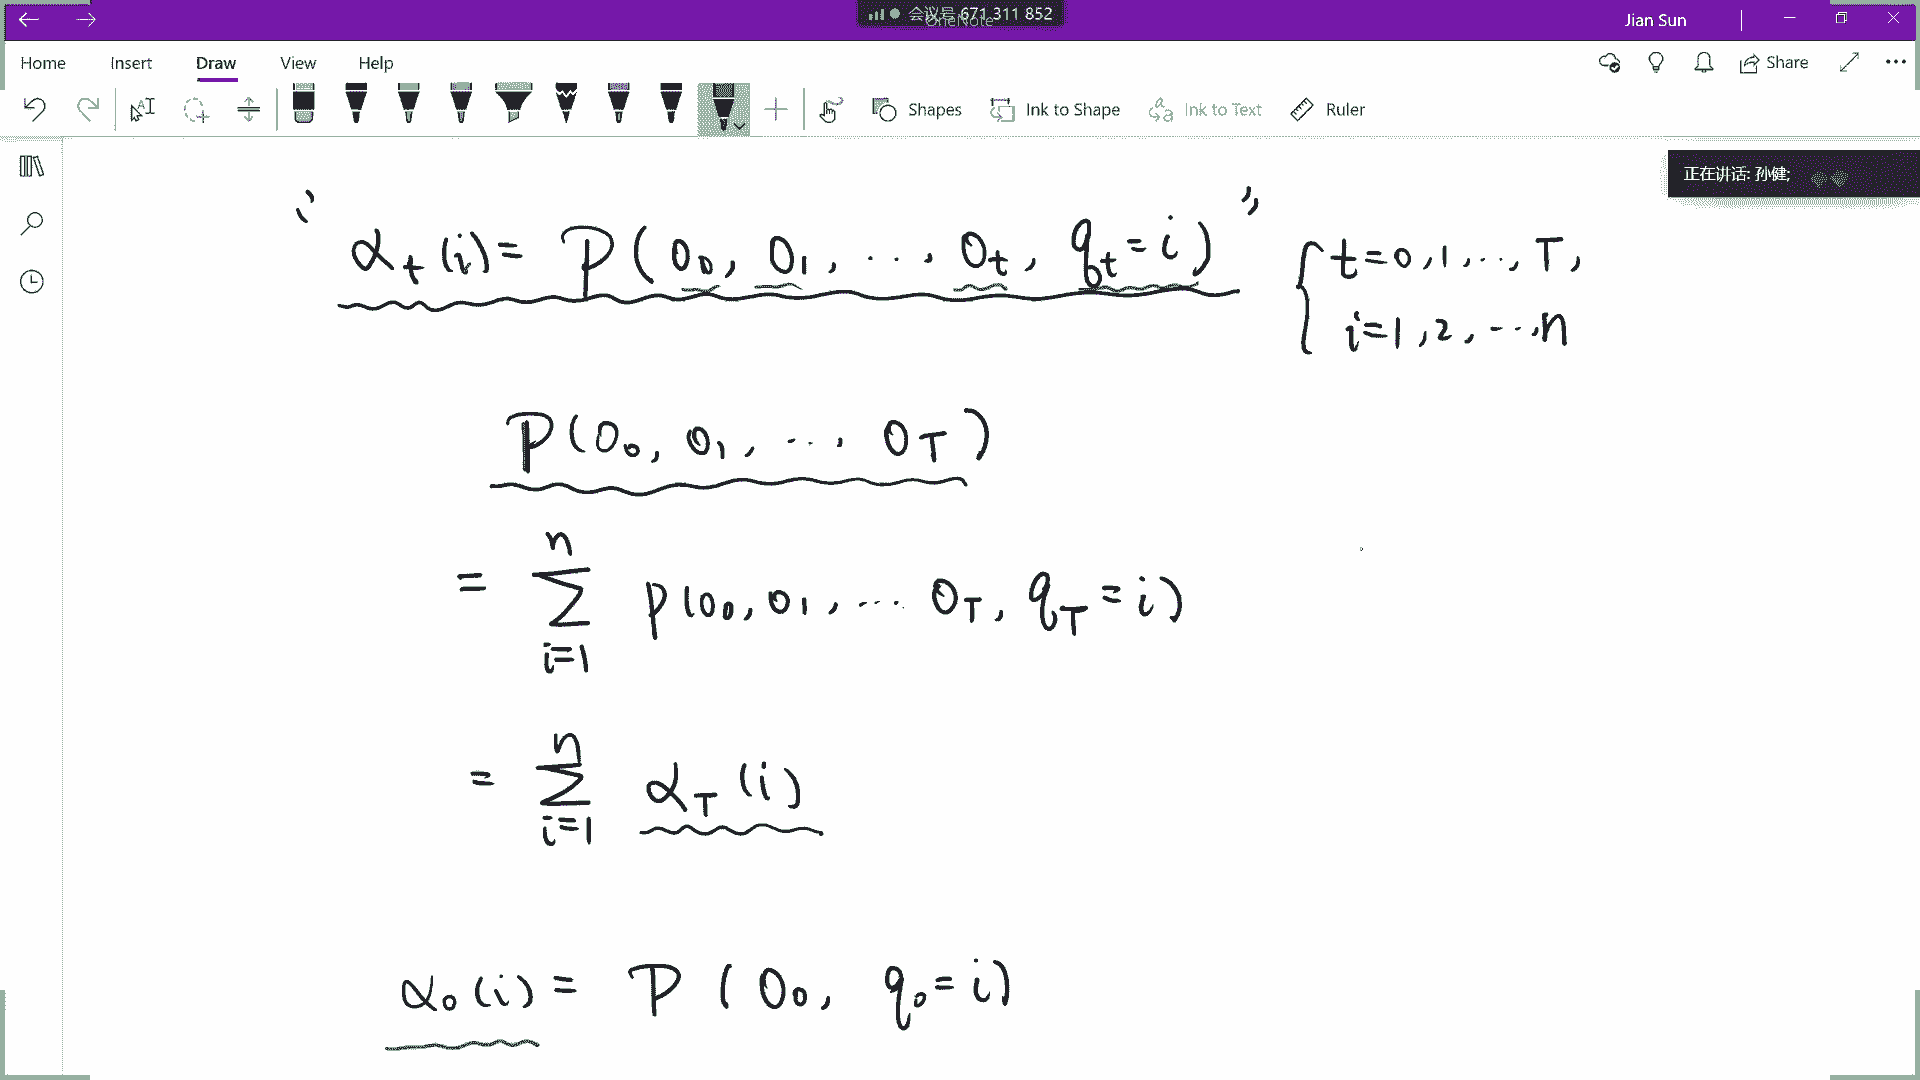 会议号 671 311 852
OneNote
Jian Sun
Home Insert Draw View Help
Share
Shapes Ink to Shape Ink to Text Ruler
正在讲话: 孙健;
" α_t(i) = P(O_0, O_1, ..., O_t, q_t = i) "
{ t = 0, 1, ..., T,
i = 1, 2, ..., n
P(O_0, O_1, ..., O_T)
= ∑_{i=1}^{n} P(O_0, O_1, ... O_T, q_T = i)
= ∑_{i=1}^{n} α_T(i)
α_0(i) = P(O_0, q_0 = i)